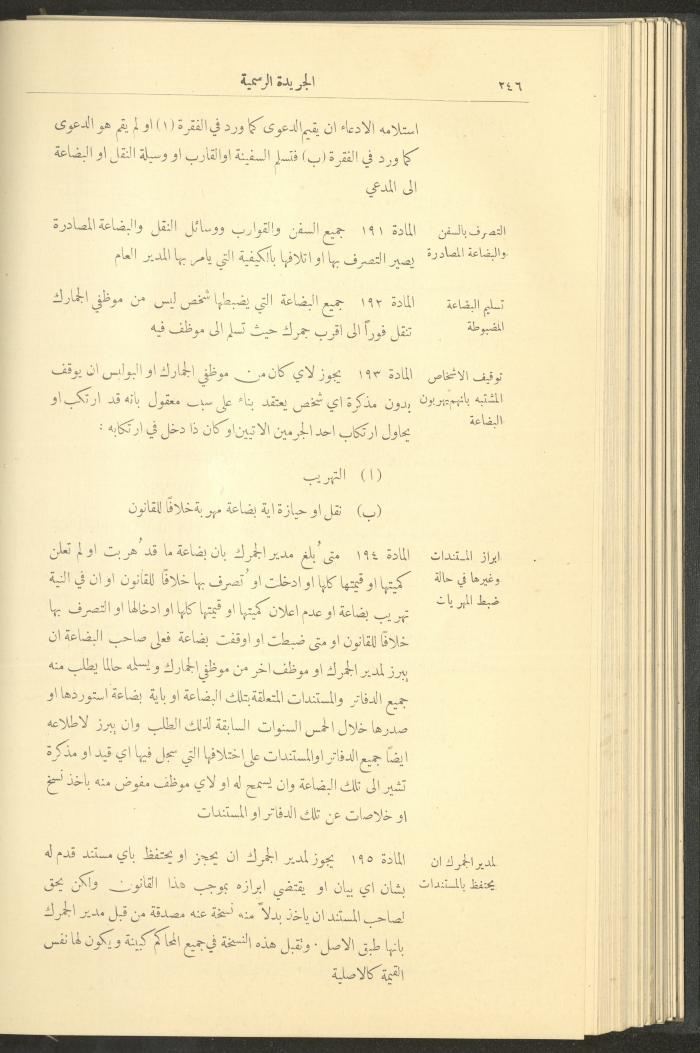 ٢٤٦ الجريدة الرسمية
استلامه الادعاء ان يقيم الدعوى كما ورد في الفقرة (١) او لم يقم هو الدعوى
كما ورد في الفقرة (ب) فتسلم السفينة او القارب او وسيلة النقل او البضاعة
الى المدعي
التصرف بالسفن
والبضاعة المصادرة
المادة ١٩١ جميع السفن والقوارب ووسائل النقل والبضاعة المصادرة
يصير التصرف بها او اتلافها بالكيفية التي يامر بها المدير العام
تسليم البضاعة
المضبوطة
المادة ١٩٢ جميع البضاعة التي يضبطها شخص ليس من موظفي الجمارك
تنقل فوراً الى اقرب جمرك حيث تسلم الى موظف فيه
توقيف الاشخاص
المشتبه بانهم يهربون
البضاعة
المادة ١٩٣ يجوز لاي كان من موظفي الجمارك او البوليس ان يوقف
بدون مذكرة اي شخص يعتقد بناء على سبب معقول بانه قد ارتكب او
يحاول ارتكاب احد الجرمين الاتيين او كان ذا دخل في ارتكابه :
(١) التهريب
(ب) نقل او حيازة اية بضاعة مهربة خلافًا للقانون
ابراز المستندات
وغيرها في حالة
ضبط المهربات
المادة ١٩٤ متى بُلغ مدير الجمرك بان بضاعة ما قد هُربت او لم تعلن
كميتها او قيمتها كلها او ادخلت او تُصرف بها خلافًا للقانون او ان في النية
تهريب بضاعة او عدم اعلان كميتها او قيمتها كلها او ادخالها او التصرف بها
خلافًا للقانون او متى ضبطت او اوقفت بضاعة فعلى صاحب البضاعة ان
يبرز لمدير الجمرك او موظف اخر من موظفي الجمارك ويسلمه حالما يطلب منه
جميع الدفاتر والمستندات المتعلقة بتلك البضاعة او باية بضاعة استوردها او
صدرها خلال الخمس السنوات السابقة لذلك الطلب وان يبرز لاطلاعه
ايضًا جميع الدفاتر او المستندات على اختلافها التي سجل فيها اي قيد او مذكرة
تشير الى تلك البضاعة وان يسمح له او لاي موظف مفوض منه باخذ نسخ
او خلاصات عن تلك الدفاتر او المستندات
لمدير الجمرك ان
يحتفظ بالمستندات
المادة ١٩٥ يجوز لمدير الجمرك ان يحجز او يحتفظ باي مستند قدم له
بشان اي بيان او يقتضي ابرازه بموجب هذا القانون ولكن يحق
لصاحب المستند ان ياخذ بدلاً منه نسخة عنه مصدقة من قبل مدير الجمرك
بانها طبق الاصل . وتقبل هذه النسخة في جميع المحاكم كبينة ويكون لها نفس
القيمة كالاصلية